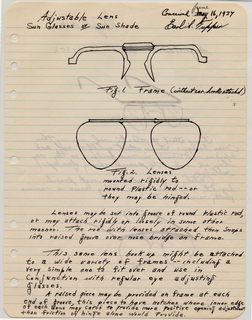 Adjustable Lens
Sun Glasses or Sun Shade
Conceived June 16, 1937
Earl S. Tupper
Fig. 1 Frame (without ear hooks attached)
Fig. 2. Lenses
mounted rigidly to
round Plastic rod -- or
they may be hinged.
Lenses may be set into groove of round Plastic rod,
or may attach rigidly or loosely in some other
manner. The rod with lenses attached then snaps
into raised groove over nose bridge on frame.
This same lens hook up might be attached
to a wide variety of frames -- including a
very simple one to fit over and use in
Conjunction with regular eye adjusting
Glasses.
A raised piece may be provided on frame at each
end of groove, this piece to notches where inner edge
of each lens may catch to provide more positive opening adjustment
than friction of hinge alone would provide.